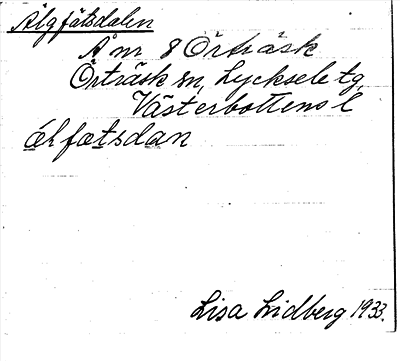 Älgfätsdalen
Å nr 8 Örträsk
Örträsk sn, Lycksele tg,
Västerbottens l
álfætsdan
Lisa Lidberg 1933.